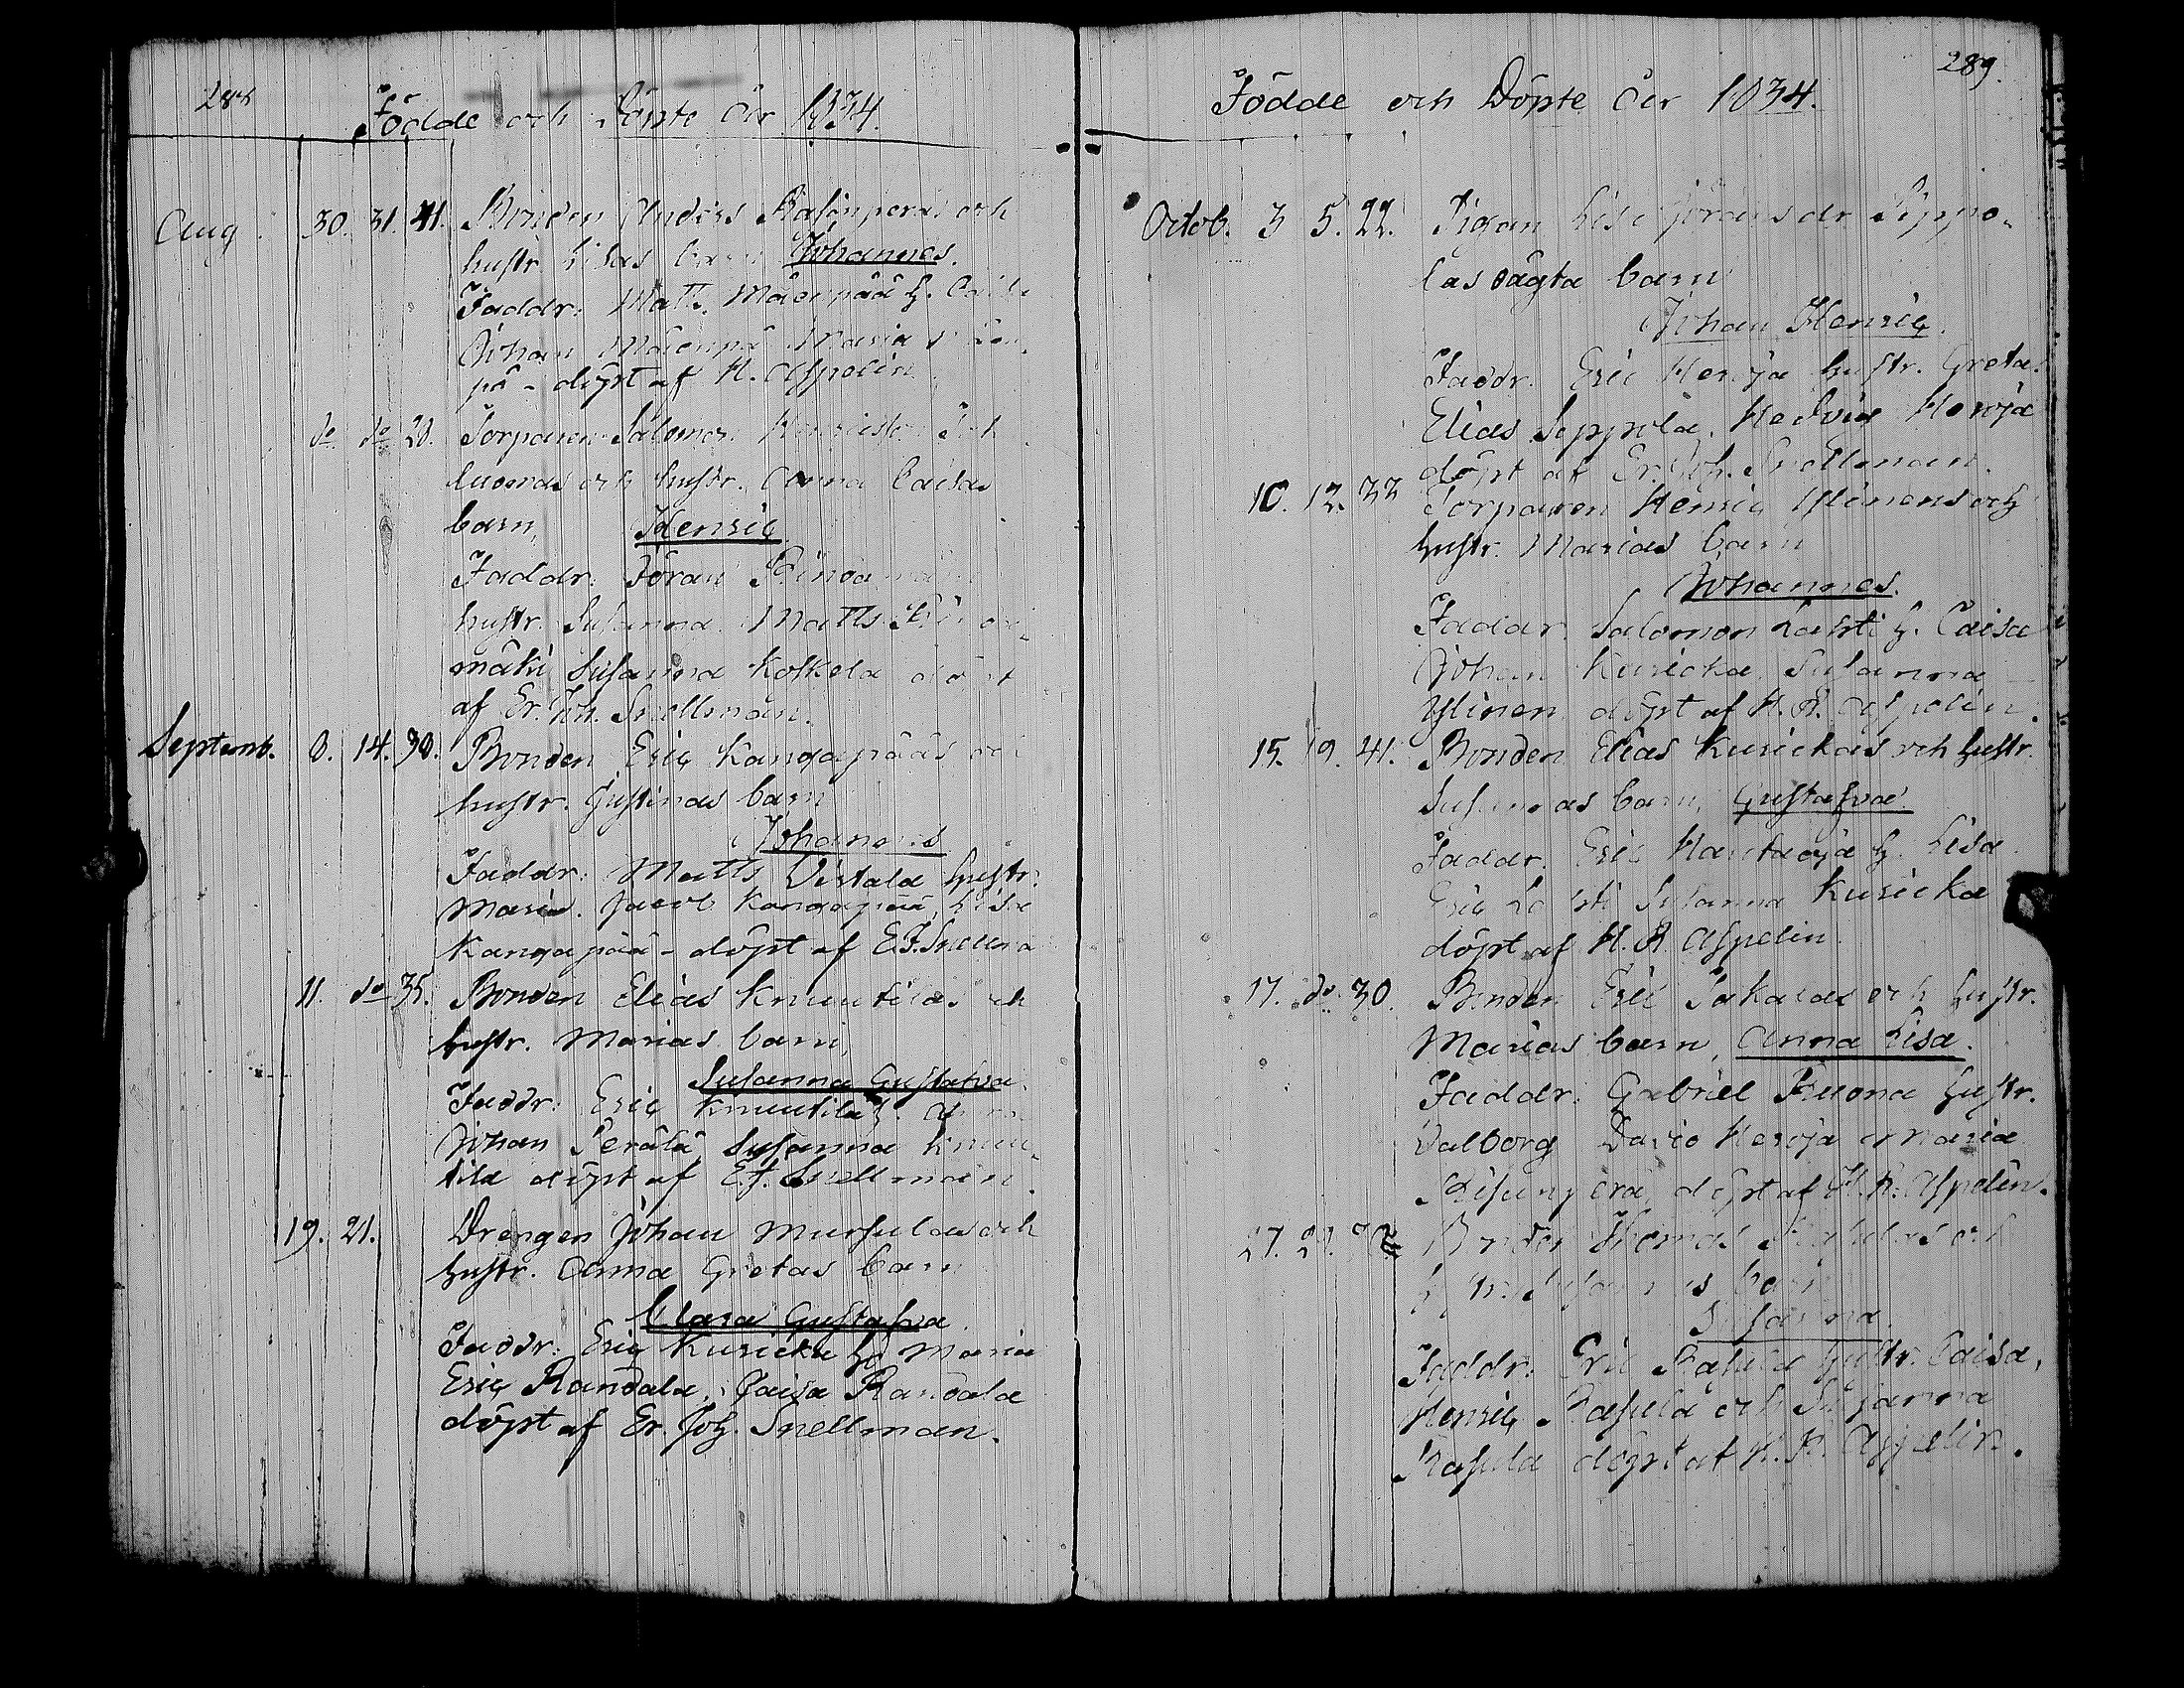 288
Födde och Döpte År 1834.
Aug. 30. 31. 41. Bonden Anders Rasinperäs och
hustr. Lisas barn Johannes.
Faddr: Matts Mäenpää h. Caisa
Johan Mäenpä Maria
pä - döpt af H. Aspelin
do do 28. Torparen Salomon
luomas och hustr. Anna Caisas
barn, Henric
Faddr: Jöran Rindamäki
hustr. Susanna. Matts
mäki Susanna Koskela döpt
af Er. Joh. Snellman.
Septemb. 8. 14. 30. Bonden Eric Kangapääs och
hustr. Justinas barn
Johannes
Faddr: Matts Viitala hustr.
Maria. Jacob Kangapää, Lisa
Kangapää - döpt af E.J. Snellma
11. do 35. Bonden Elias Knuutilas och
hustr. Marias barn,
Susanna Gustafva
Faddr: Eric Knuutila h. Anna
Johan Perälä Susanna Knuu-
tila döpt af E.J. Snellman.
19. 21. Drengen Johan Mursulas och
hustr. Anna Gretas barn
Clara Gustafva
Faddr: Eric Kuricka h. Maria
Eric Randala, Caisa Randala
döpt af Er. Joh. Snellman.
289.
Födde och Döpte År 1834.
Octob. 3 5. 22. Pigan Lisa Jöransdr Seppo-
las oägta barn
Johan Henric
Faddr. Eric Heroja hustr. Greta.
Elias Seppola, Hedvig Heroja
döpt af Er. Joh. Snellman.
10. 12. 33 Torparen Henric Ylinens och
hustr. Marias barn
Johannes.
Faddr. Salomon Lahti h. Caisa
Johan Kuricka Susanna
Ylinen döpt af H. R. Aspelin.
15. 19. 41. Bonden Elias Kurickas och hustr.
Susannas barn, Gustafva
Faddr. Eric Hautaoja h. Lisa
Eric Lahti Susanna Kuricka
döpt af H. R. Aspelin
17. do 30. Bonden Eric Jakalas och hustr.
Marias barn, Anna Lisa.
Faddr: Gabriel Fuona hustr.
Valborg David Heroja Maria
döpt af H. R. Aspelin.
27. 29. Bonden Thomas Rasulas och
hustr. Susannas barn
Susanna
Faddr: Eric Rasula hustr. Caisa,
Henric Rasula och Susanna
Rasula döpt af H. R. Aspelin.